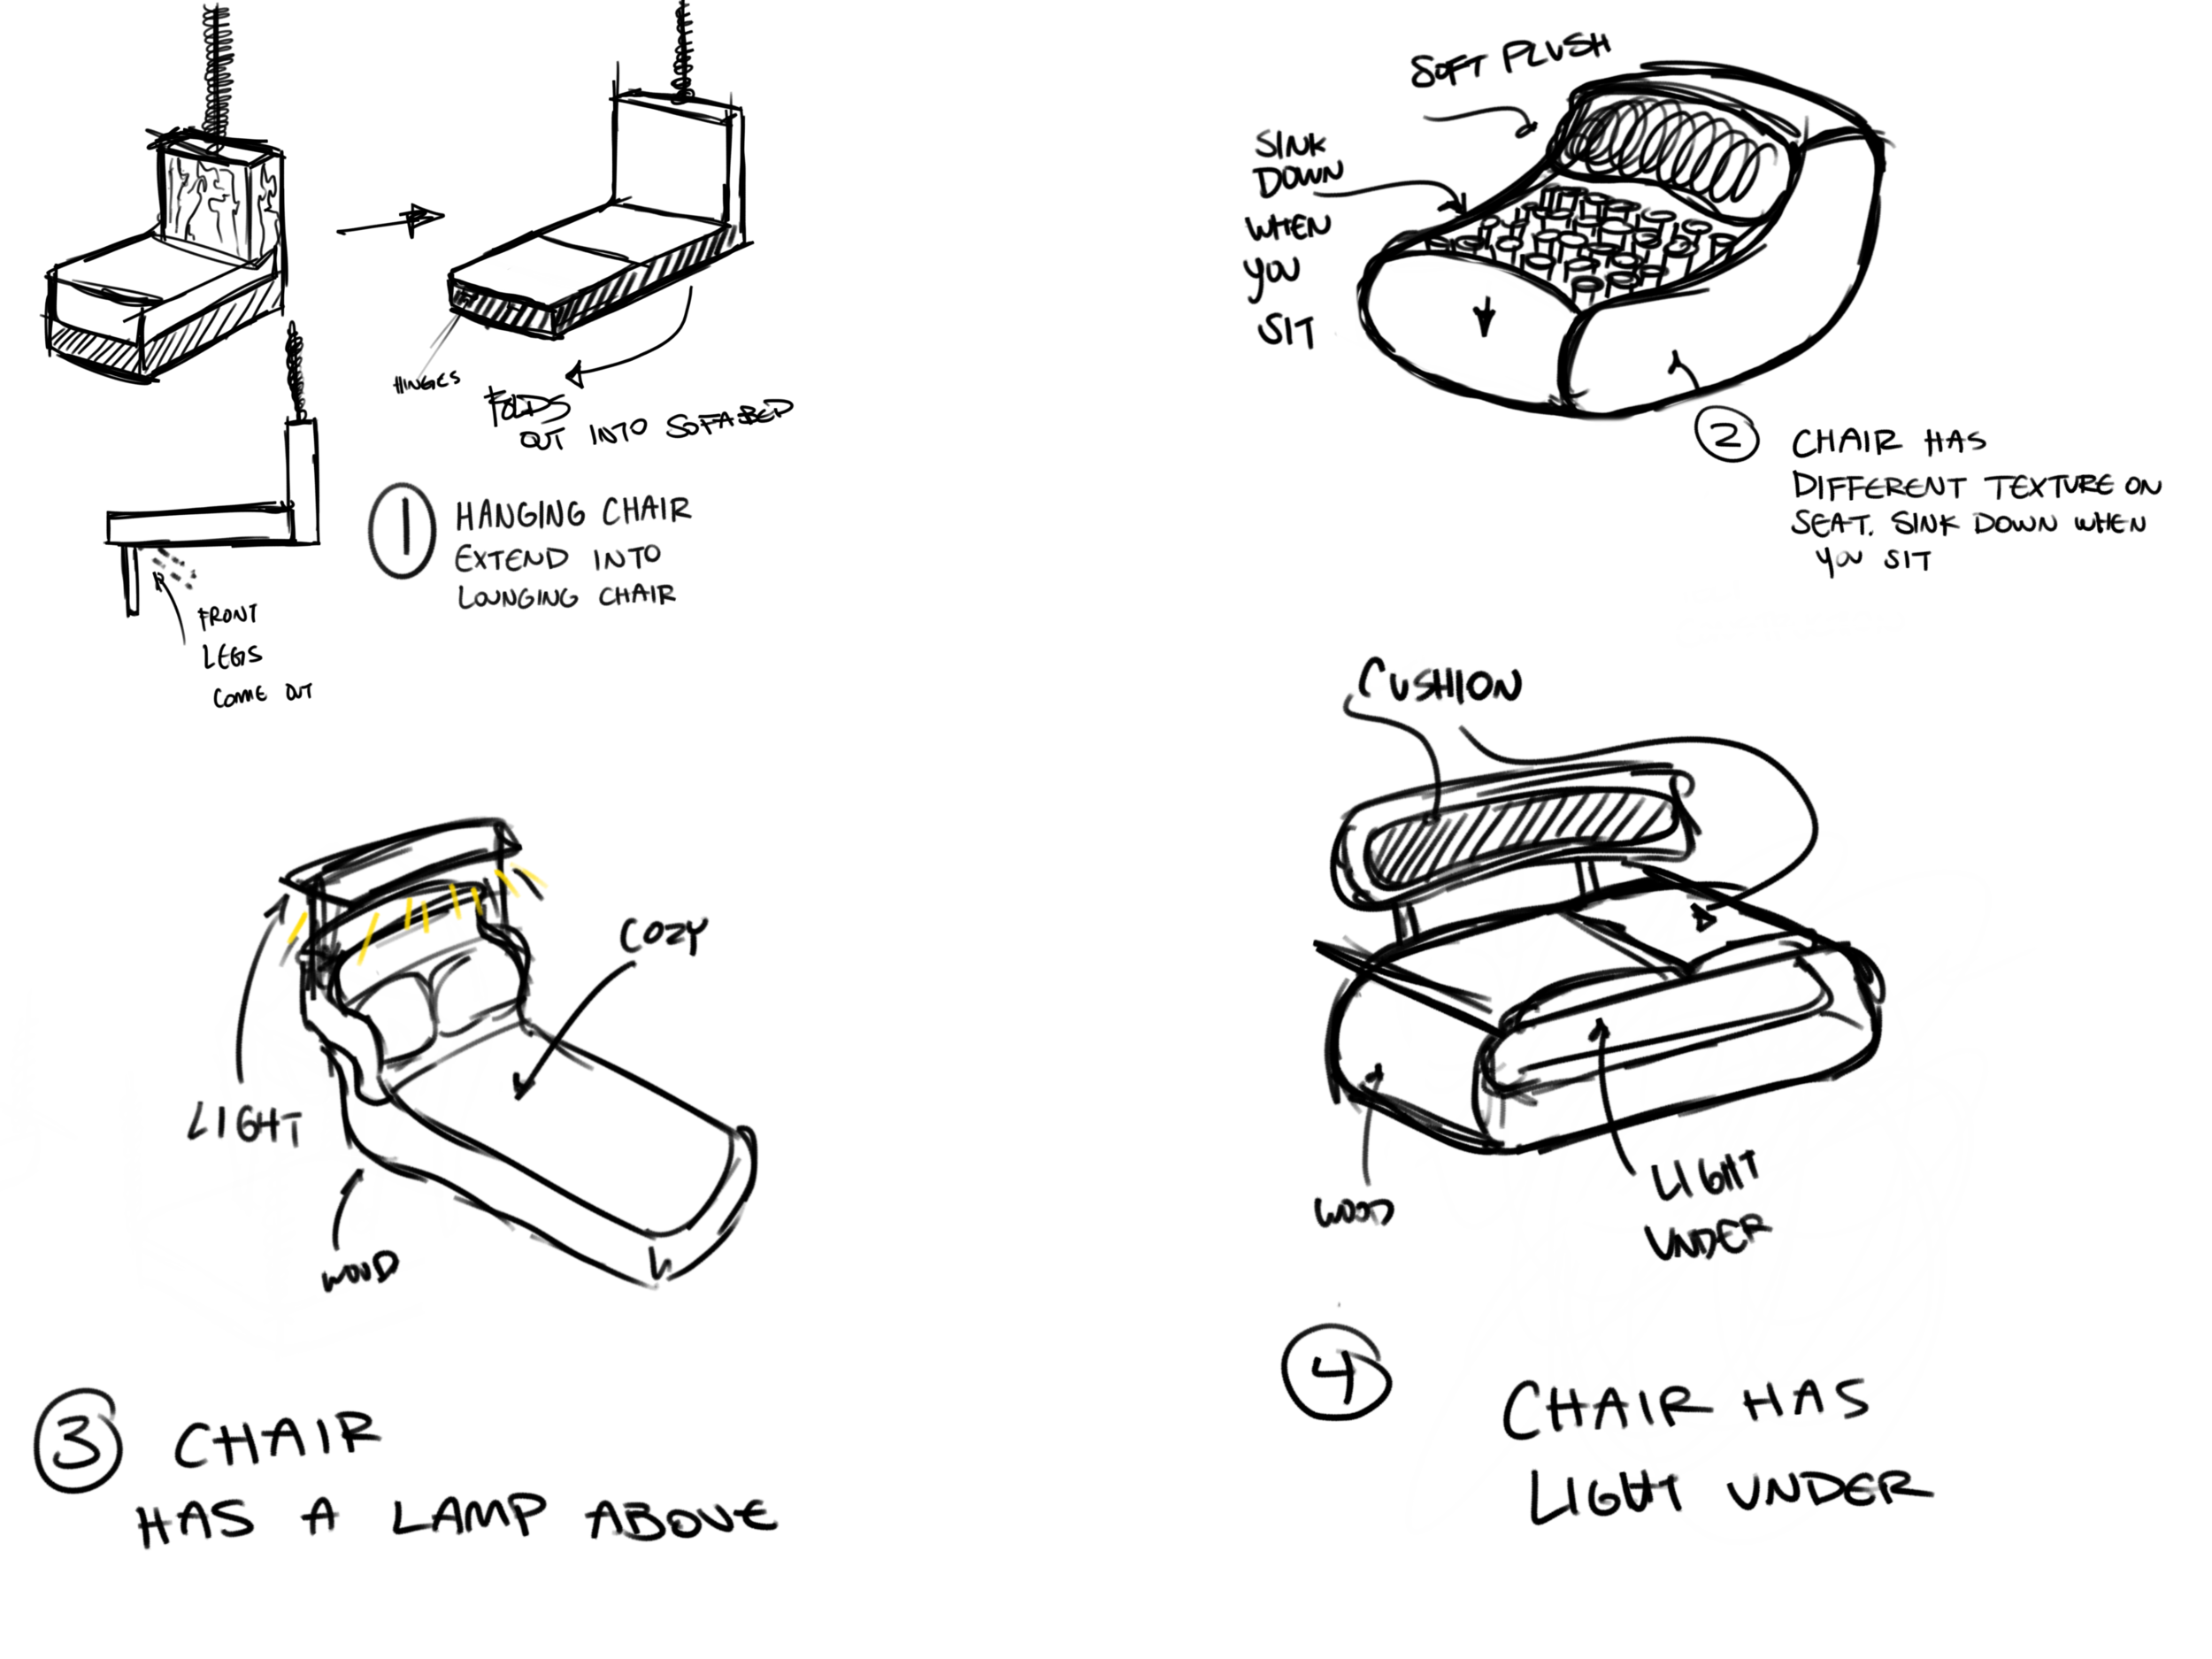 HINGES
FOLDS
OUT INTO SOFABED
1
HANGING CHAIR
EXTEND INTO
LOUNGING CHAIR
FRONT
LEGS
COME OUT
SOFT PLUSH
SINK
DOWN
WHEN
YOU
SIT
2
CHAIR HAS
DIFFERENT TEXTURE ON
SEAT. SINK DOWN WHEN
YOU SIT
COZY
LIGHT
WOOD
3
CHAIR
HAS A LAMP ABOVE
CUSHION
WOOD
LIGHT
UNDER
4
CHAIR HAS
LIGHT UNDER